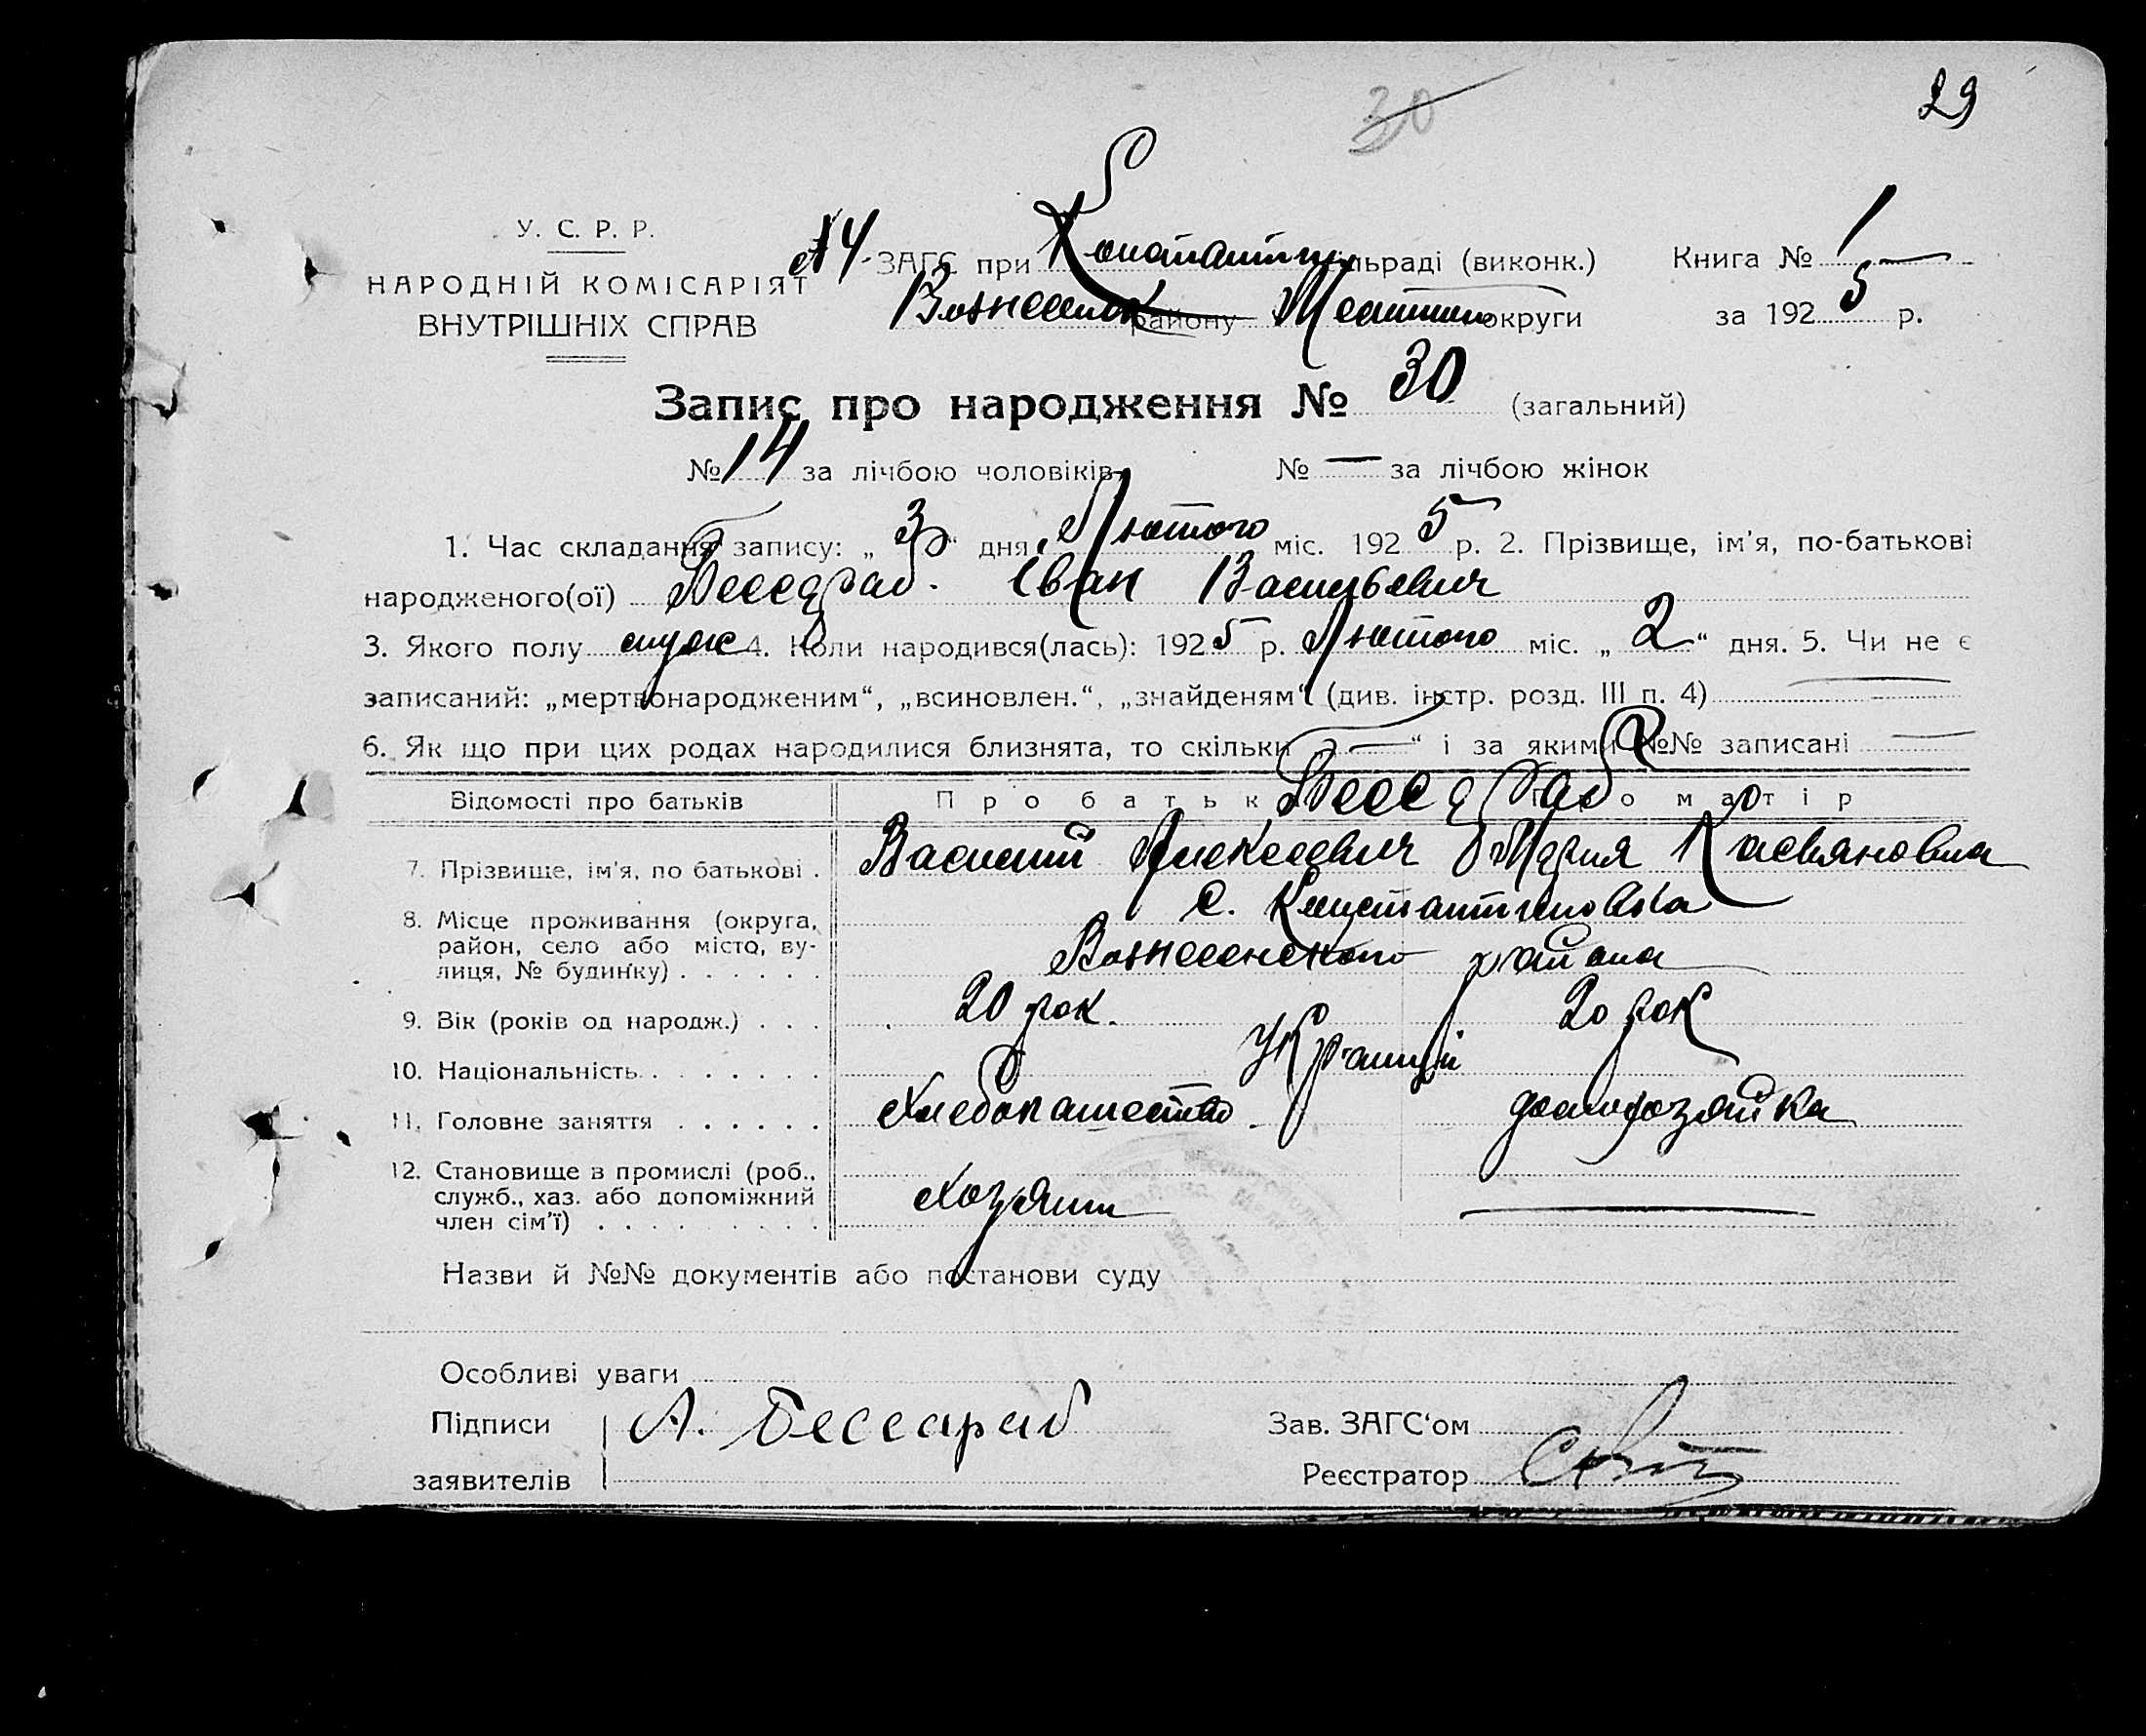 30
29
У. С. Р. Р.
НАРОДНІЙ КОМІСАРІЯТ
ВНУТРІШНІХ СПРАВ
ЗАГС при Константин льраді (виконк.) Книга № 1
Вознесенск району округи за 1925 р.
Запис про народження № 30 (загальний)
№ 14 за лічбою чоловіків № — за лічбою жінок
1. Час складання запису: „3“ дня Лютого міс. 1925 р. 2. Прізвище, ім'я, по-батькові
народженого(ої) Бессараб Іван Васильевич
3. Якого полу муж 4. Коли народився(лась): 1925 р. Лютого міс. „2“ дня. 5. Чи не є
записаний: „мертвонародженим“, „всиновлен.“, „знайденям“ (див. інстр. розд. III п. 4) —
6. Як що при цих родах народилися близнята, то скільки „—“ і за якими №№ записані —
Відомості про батьків Про батька Про матір
Бессараб
7. Прізвище, ім'я, по батькові . Василий Алексеевич Мария Касьяновна
8. Місце проживання (округа, район, село або місто, ву-лиця, № будинку) . . . . . . с. Константиновка
Вознесенского района
9. Вік (років од народж.) . . . 20 рок. 20 рок
10. Національність . . . . . . .
11. Головне заняття . . . . . . Хлебопашество домохозяйка
12. Становище в промислі (роб., служб., хаз. або допоміжний член сім'ї) . . . . . . . . . Хозяин —
Назви й №№ документів або постанови суду
Особливі уваги
Підписи А. Бессараб Зав. ЗАГС'ом
заявителів Реєстратор